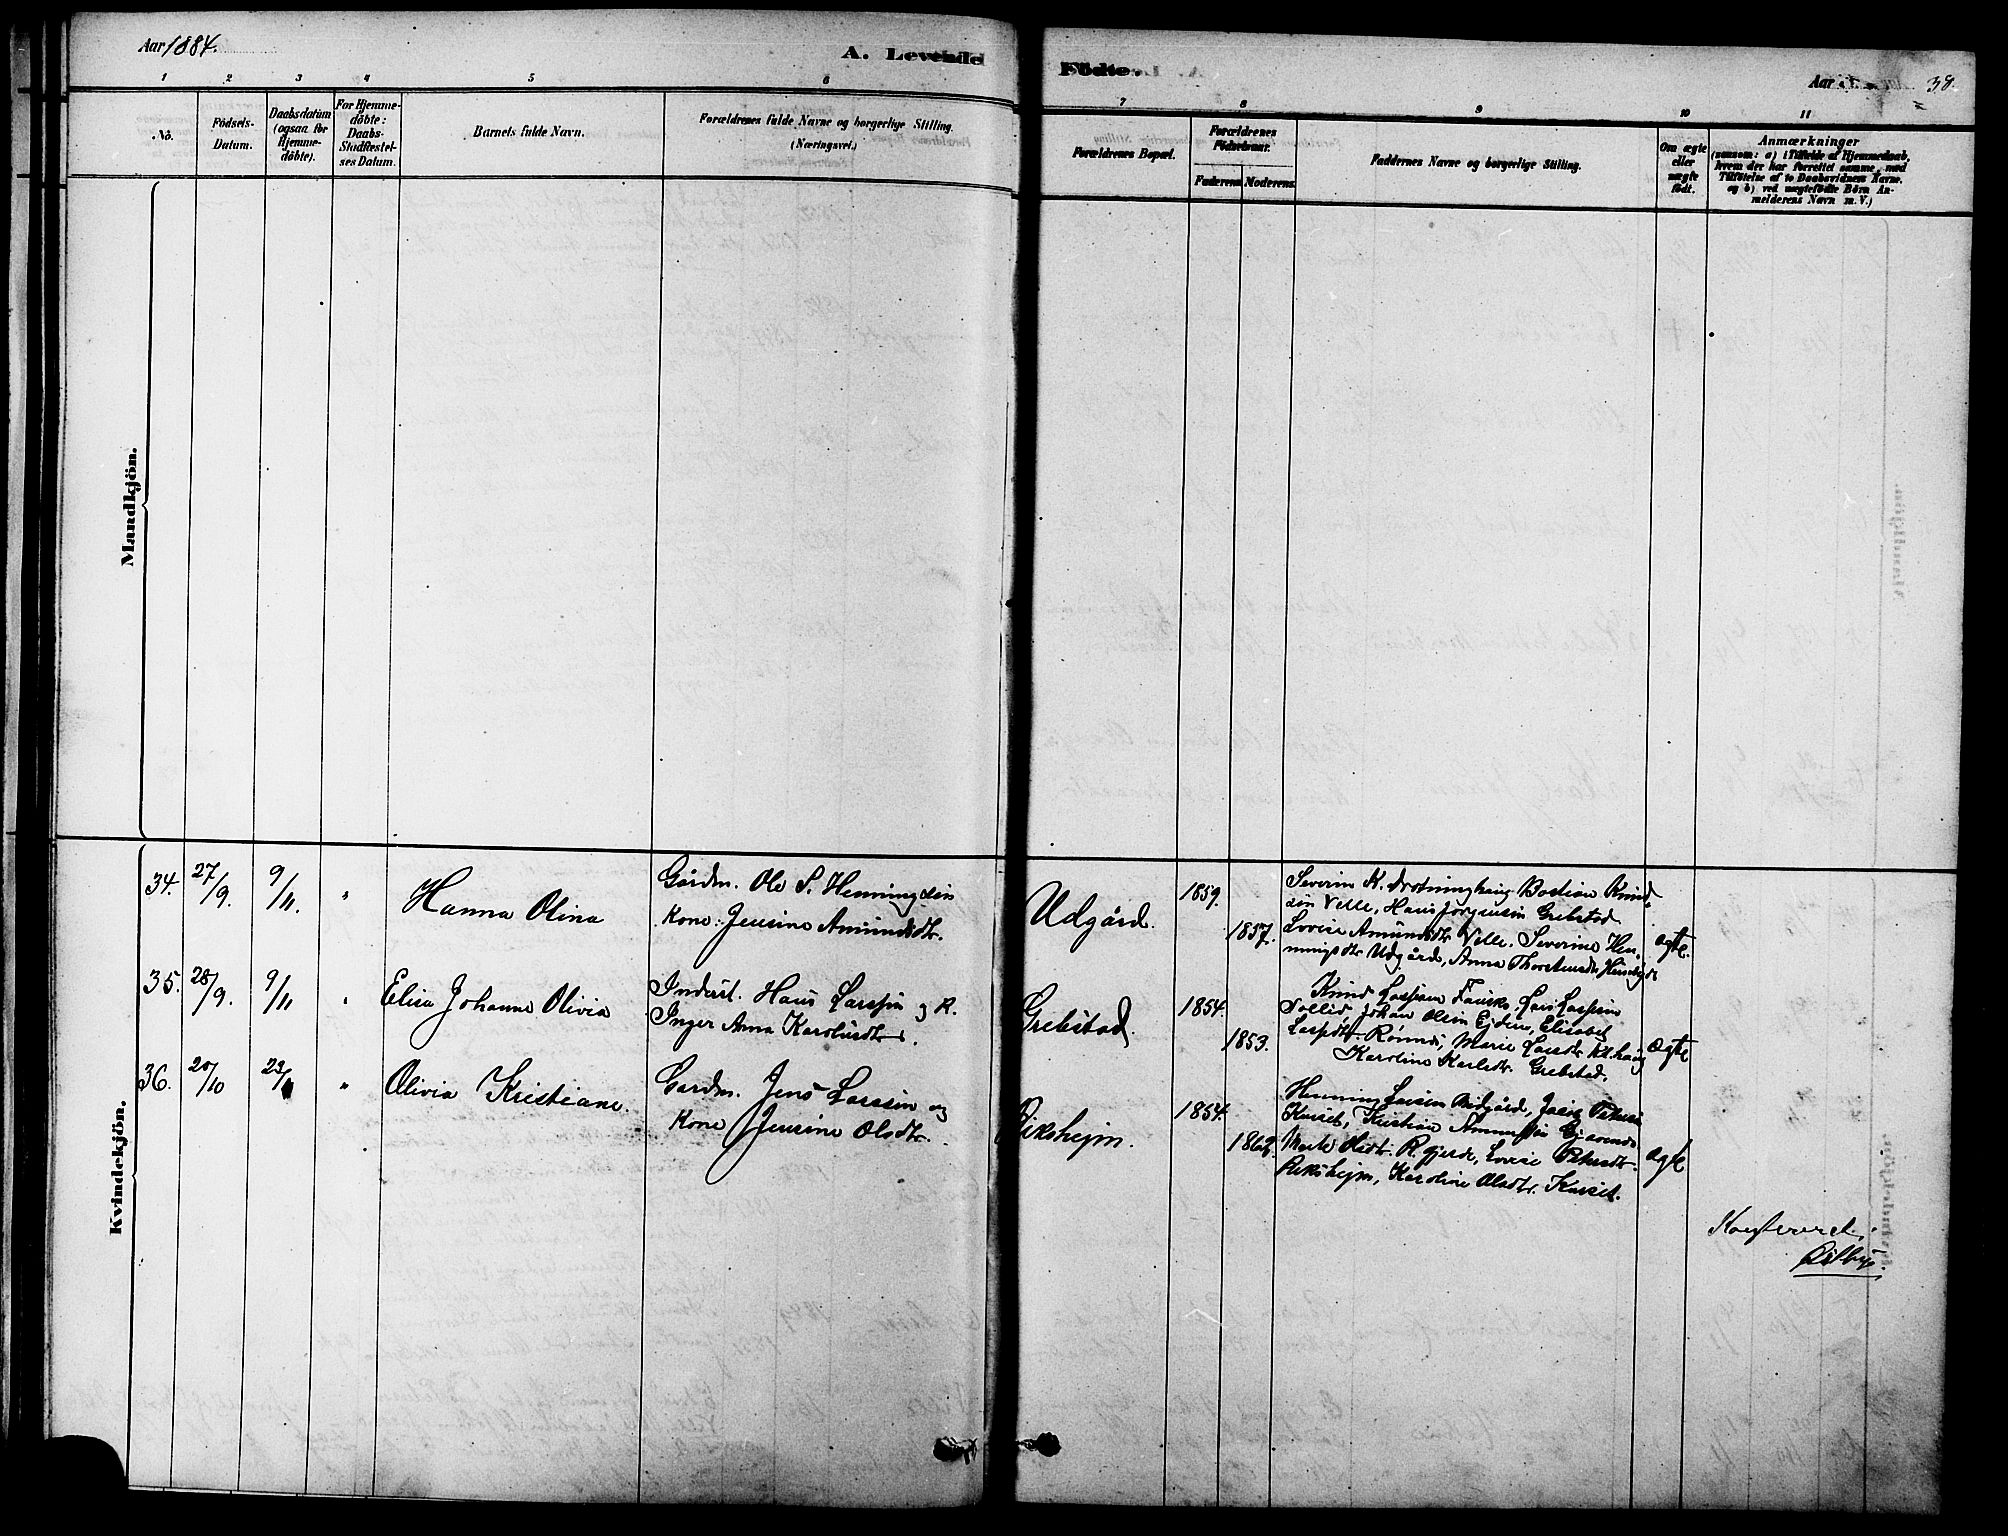 Aar 1884.
A. Levende
Födte.
Aar
38.
1 2 3 4 5 6
7 8 9 10 11
No.
Födsels-
Datum.
Daabsdatum
(ogsaa for
Hjemme-
döbte).
For Hjemme-
döbte:
Daabs-
Stadfæstel-
ses Datum.
Barnets fulde Navn.
Forældrenes fulde Navne og borgerlige Stilling.
(Næringsvei.)
Forældrenes Bopæl.
Forældrenes
Födselsaar.
Faderens. Moderens.
Faddernes Navne og borgerlige Stilling.
Om ægte
eller
uægte
födt.
Anmærkninger
(saasom: a) i Tilfælde af Hjemmedaab,
hvem der har forrettet samme, med
Tilföielse af to Daabsvidners Navne.
og b) ved uægtefödte Börn An-
melderens Navn m. V.)
Mandkjön.
Kvindekjön.
34. 27/9. 9/11. " Hanna Olina
Gårdm. Ole S. Henningsen
Kone: Jensine Amundsdtr.
Udgård. 1859. 1857.
Severin K. Drotninghaug Bastian Knud-
sen Velle, Hans Jørgensen Grebstad
Lovise Amundsdtr Velle. Severine Hen-
ningsdtr Udgård, Anna Thorstensdtr
ægte.
35. 28/9. 9/11 " Elisa Johanne Olivia
Inderst. Hans Larssen og K.
Inger Anna Karolusdtr.
Grebstad. 1854. 1853.
Knud Larssen Lars Larssen
Sollid Johan Olsen Ejdem, Elisabet
Larsdtr. Marie Larsdtr
Karoline Karlsdtr. Grebstad.
ægte
36. 20/10 23/11 " Olivia Kristiane.
Gardm. Jens Larssen og
Kone Jensine Olsdtr.
Rikshejm. 1854. 1862.
Henning Larsen Midgård,
Kurset, Kristian
Marte Olsdtr. Lovise Petersdtr.
Rikshejm, Karoline Olsdtr. Kurset.
ægte
Konfereret.
Østbye.